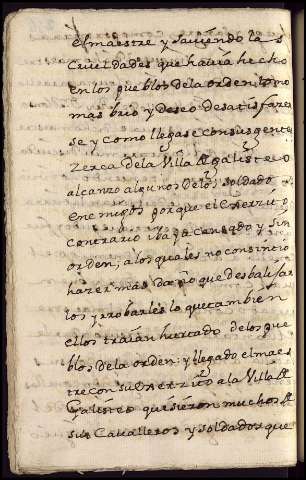 el maestre y saviendo las
crueldades que havia hecho
en los pueblos dela orden tomo
mas brio y deseo de satisfazer
se y como llegase con su gente
zerca dela Villa de galisteo
alcanzo algunos delos soldados
enemigos porque el exerzito
contrario iva ya cansado y sin
orden; alos quales no consintio
hazer mas daño que desbalijar
los y rrobarles lo que tambien
ellos traian hurtado delos pue
blos dela orden: y llegado el maes
tre con su exerzito ala Villa de
Galisteo quisieron muchos de
sus Cavalleros y soldados que